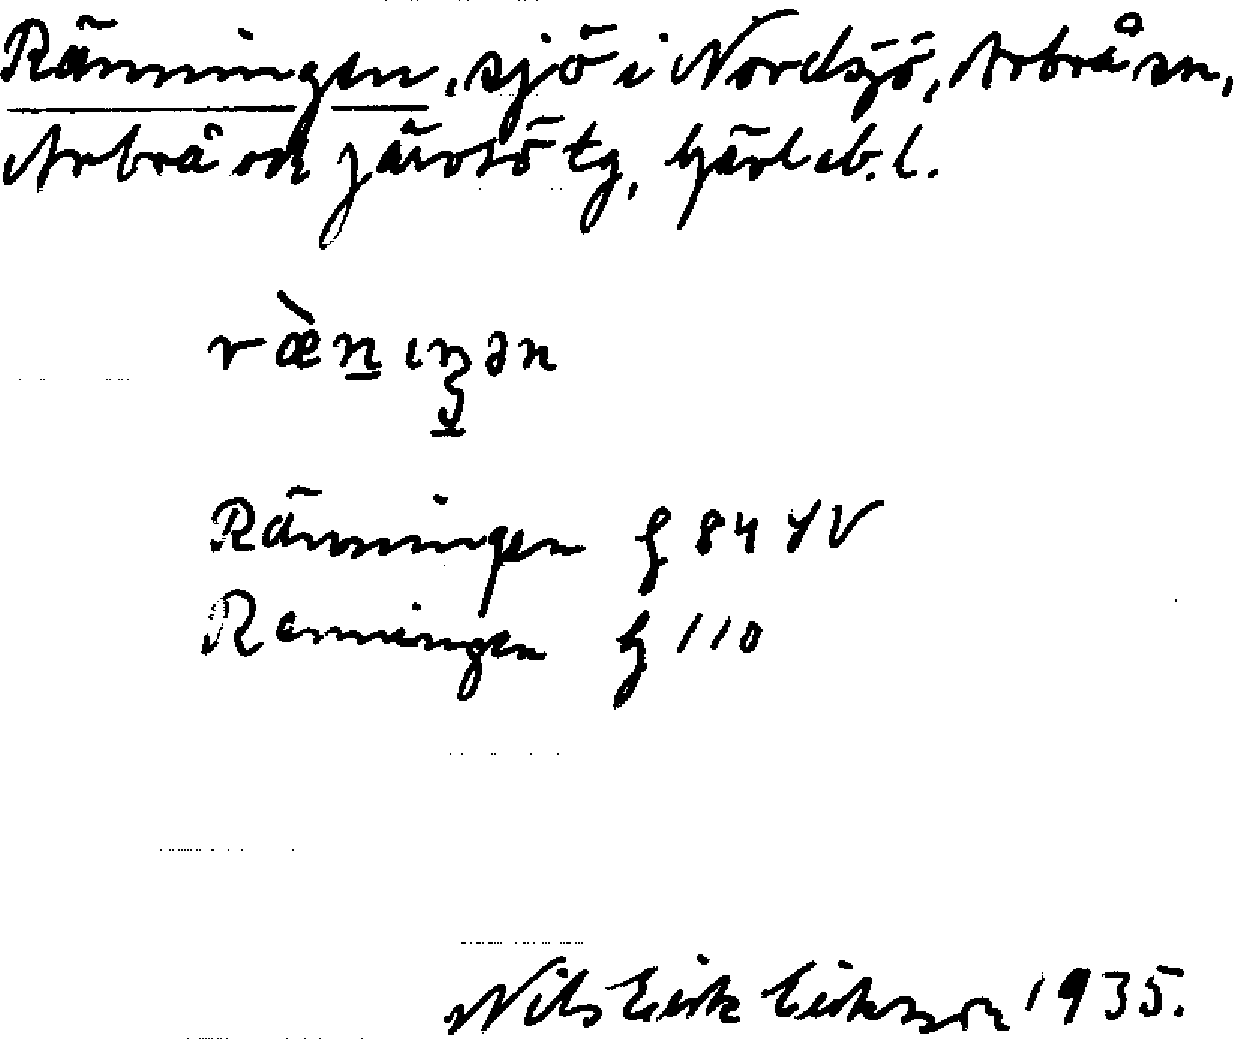 Ränningen, sjö i Nordsjö, Arbrå sn,
Arbrå och Järvsö tg, Gävleb. l.
ræ̀n̲ıŋən
Ränningen G 84 YV
Renningen G 110
Nils Erik Eriksson 1935.